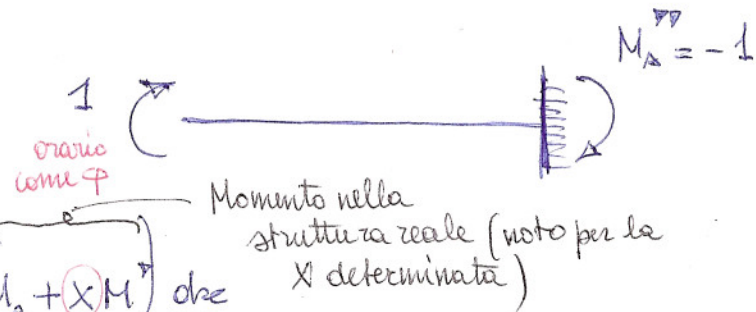 M_A'' = - 1
1
orario
come φ
Momento nella
struttura reale (noto per la
X determinata)
M_0 + X M' ] dx